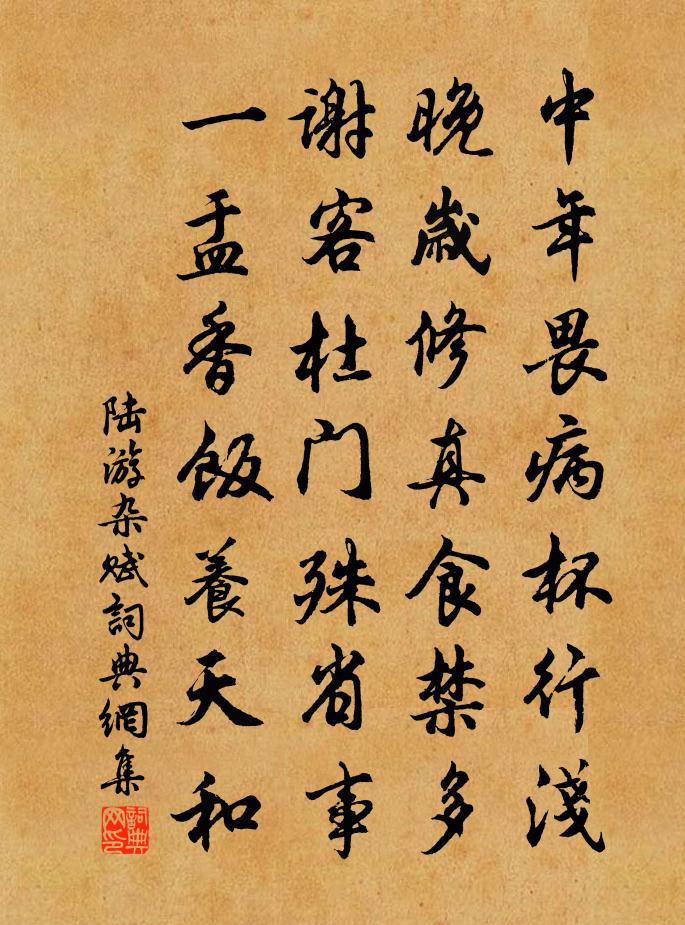 中年畏病杯行淺
晚歲修真食禁多
謝客杜门殊省事
一盂香飯養天和
陆游杂赋詞典網集
詞典网印